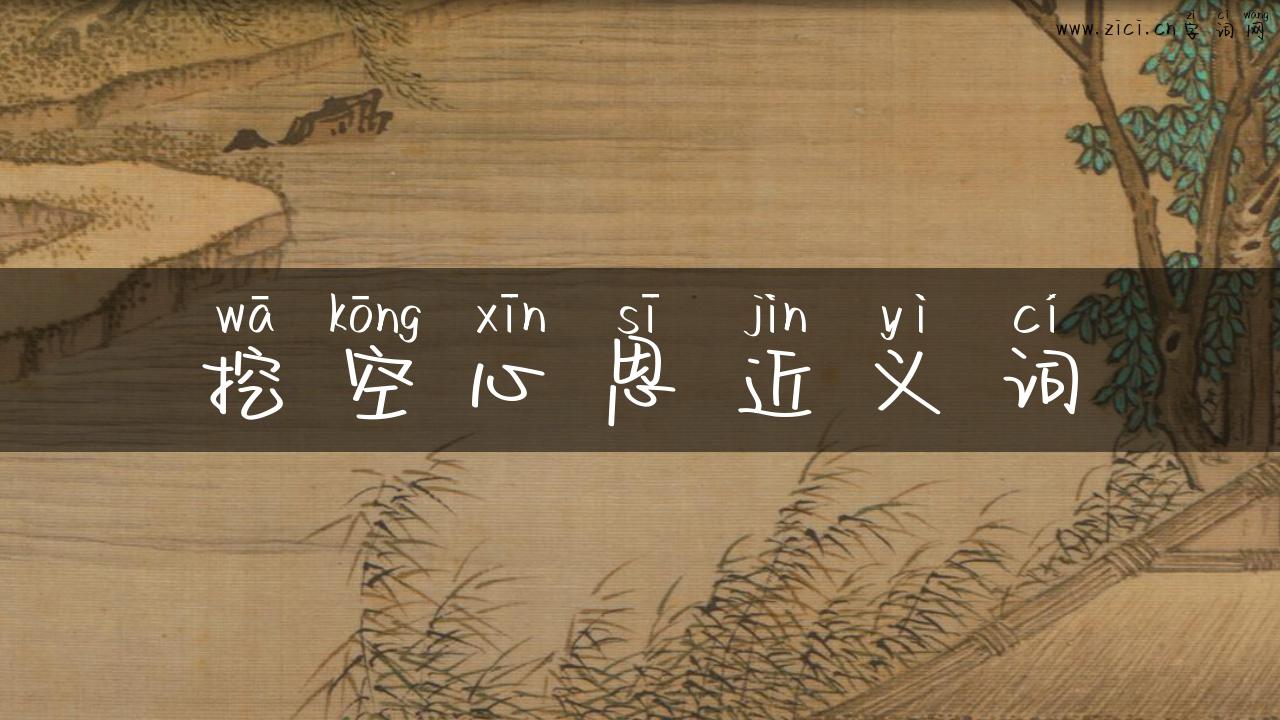 zì cí wǎng
www.zici.cn 字词网
wā kōng xīn sī jìn yì cí
挖空心思近义词